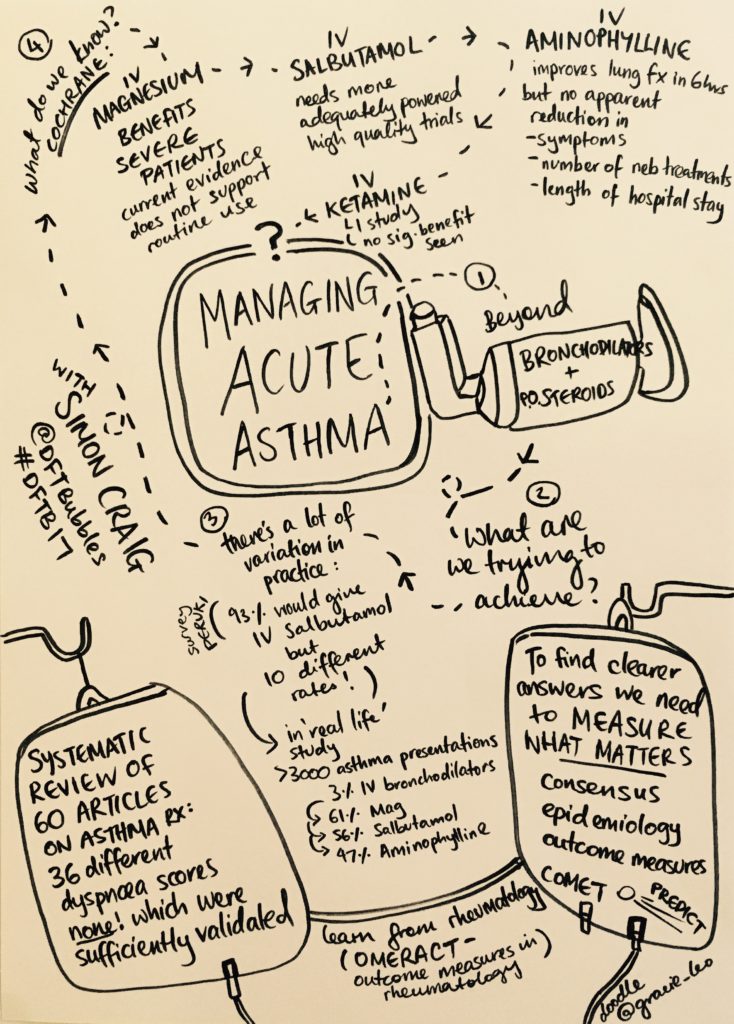 MANAGING
ACUTE
ASTHMA
?
WITH
SIMON CRAIG
@DFTBubbles
#DFTB17
1
Beyond
BRONCHODILATORS
+
P.O. STEROIDS
2.
What are
we trying to
achieve?
3
there's a lot of
variation in
practice:
survey
PERUKI
93% would give
IV Salbutamol
but
10 different
rates!
in 'real life'
study
>3000 asthma presentations
3% IV bronchodilators
61% Mag
56% Salbutamol
47% Aminophylline
4
What do we know?
COCHRANE:
IV
MAGNESIUM
BENEFITS
SEVERE
PATIENTS
current evidence
does not support
routine use
IV
SALBUTAMOL
needs more
adequately powered
high quality trials
IV
AMINOPHYLLINE
improves lung fx in 6hrs
but no apparent
reduction in
-symptoms
-number of neb treatments
-length of hospital stay
IV
KETAMINE
1 study
no sig. benefit
seen
SYSTEMATIC
REVIEW OF
60 ARTICLES
ON ASTHMA RX:
36 different
dyspnoea scores
none! which were
sufficiently validated
learn from rheumatology
(OMERACT-
outcome measures in
rheumatology)
To find clearer
answers we need
to MEASURE
WHAT MATTERS
consensus
epidemiology
outcome measures
COMET
PREDICT
doodle
@gracie_leo